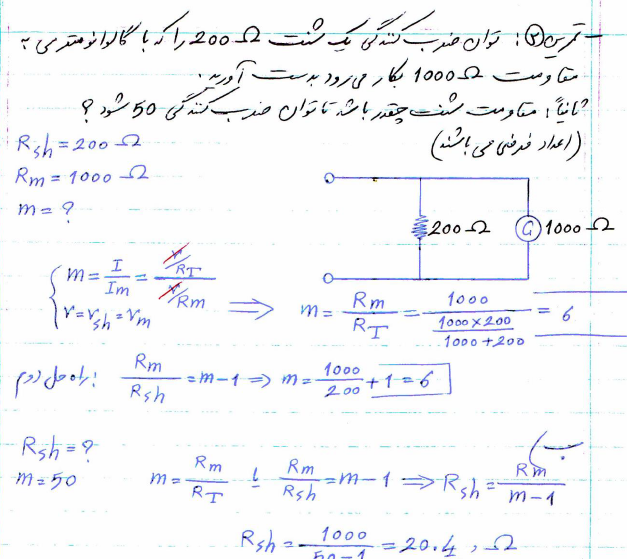 - تمرین ②: توان ضرب کنندگی یک شنت 200 Ω را که با گالوانومتر می به
مقاومت 1000 Ω بکار می رود بدست آورید.
ثانیاً: مقاومت شنت چقدر باشد تا توان ضرب کنندگی 50 شود؟
(اعداد فرضی می باشند)
Rsh = 200 Ω
Rm = 1000 Ω
m = ?
200 Ω G 1000 Ω
m = I/Im = (V/RT)/(V/Rm)
V = Vsh = Vm ⇒ m = Rm/RT = 1000/((1000×200)/(1000+200)) = 6
راه حل دوم: Rm/Rsh = m-1 ⇒ m = 1000/200 + 1 = 6
ب)
Rsh = ?
m = 50 m = Rm/RT یا Rm/Rsh = m-1 ⇒ Rsh = Rm/(m-1)
Rsh = 1000/(50-1) = 20.4, Ω